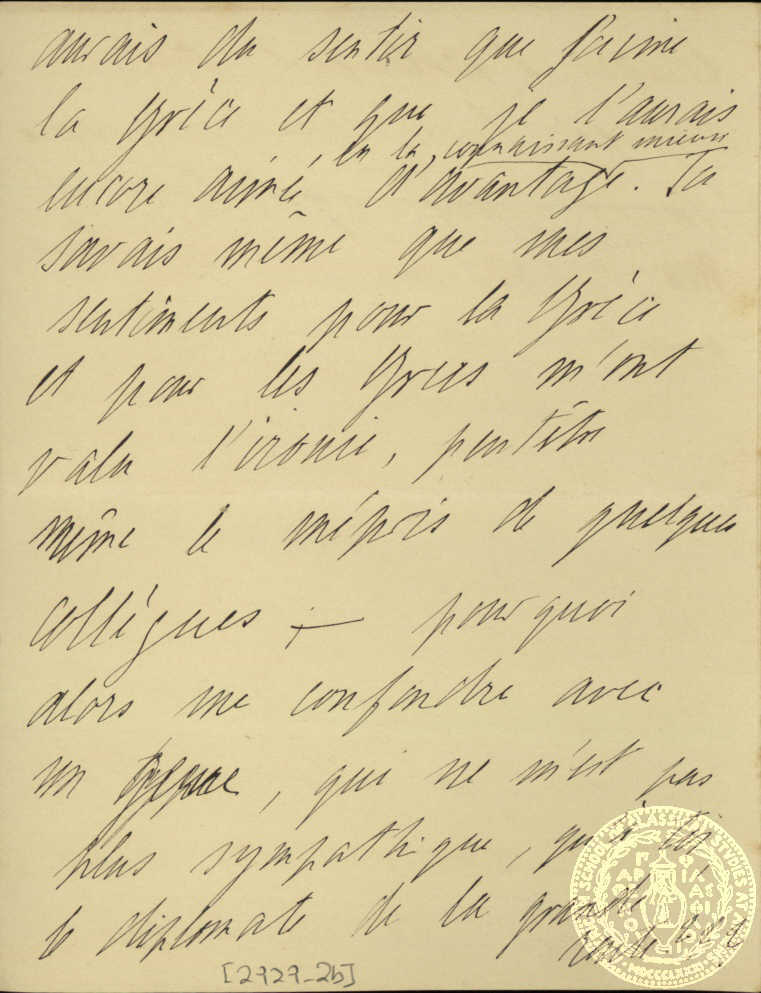 aurais du sentir que j'aime
la Grèce et que je l'aurais
, en la connaissant mieux
encore aimé d'avantage. Tu
savais même que mes
sentiments pour la Grèce
et pour les Grecs m'ont
valu l'ironie, peut être
même le mépris de quelques
collègues ; — pourquoi
alors me confondre avec
un , qui ne m'est pas
plus sympathique, qu'à toi
le diplomate de la grande
route
[2929-2b]